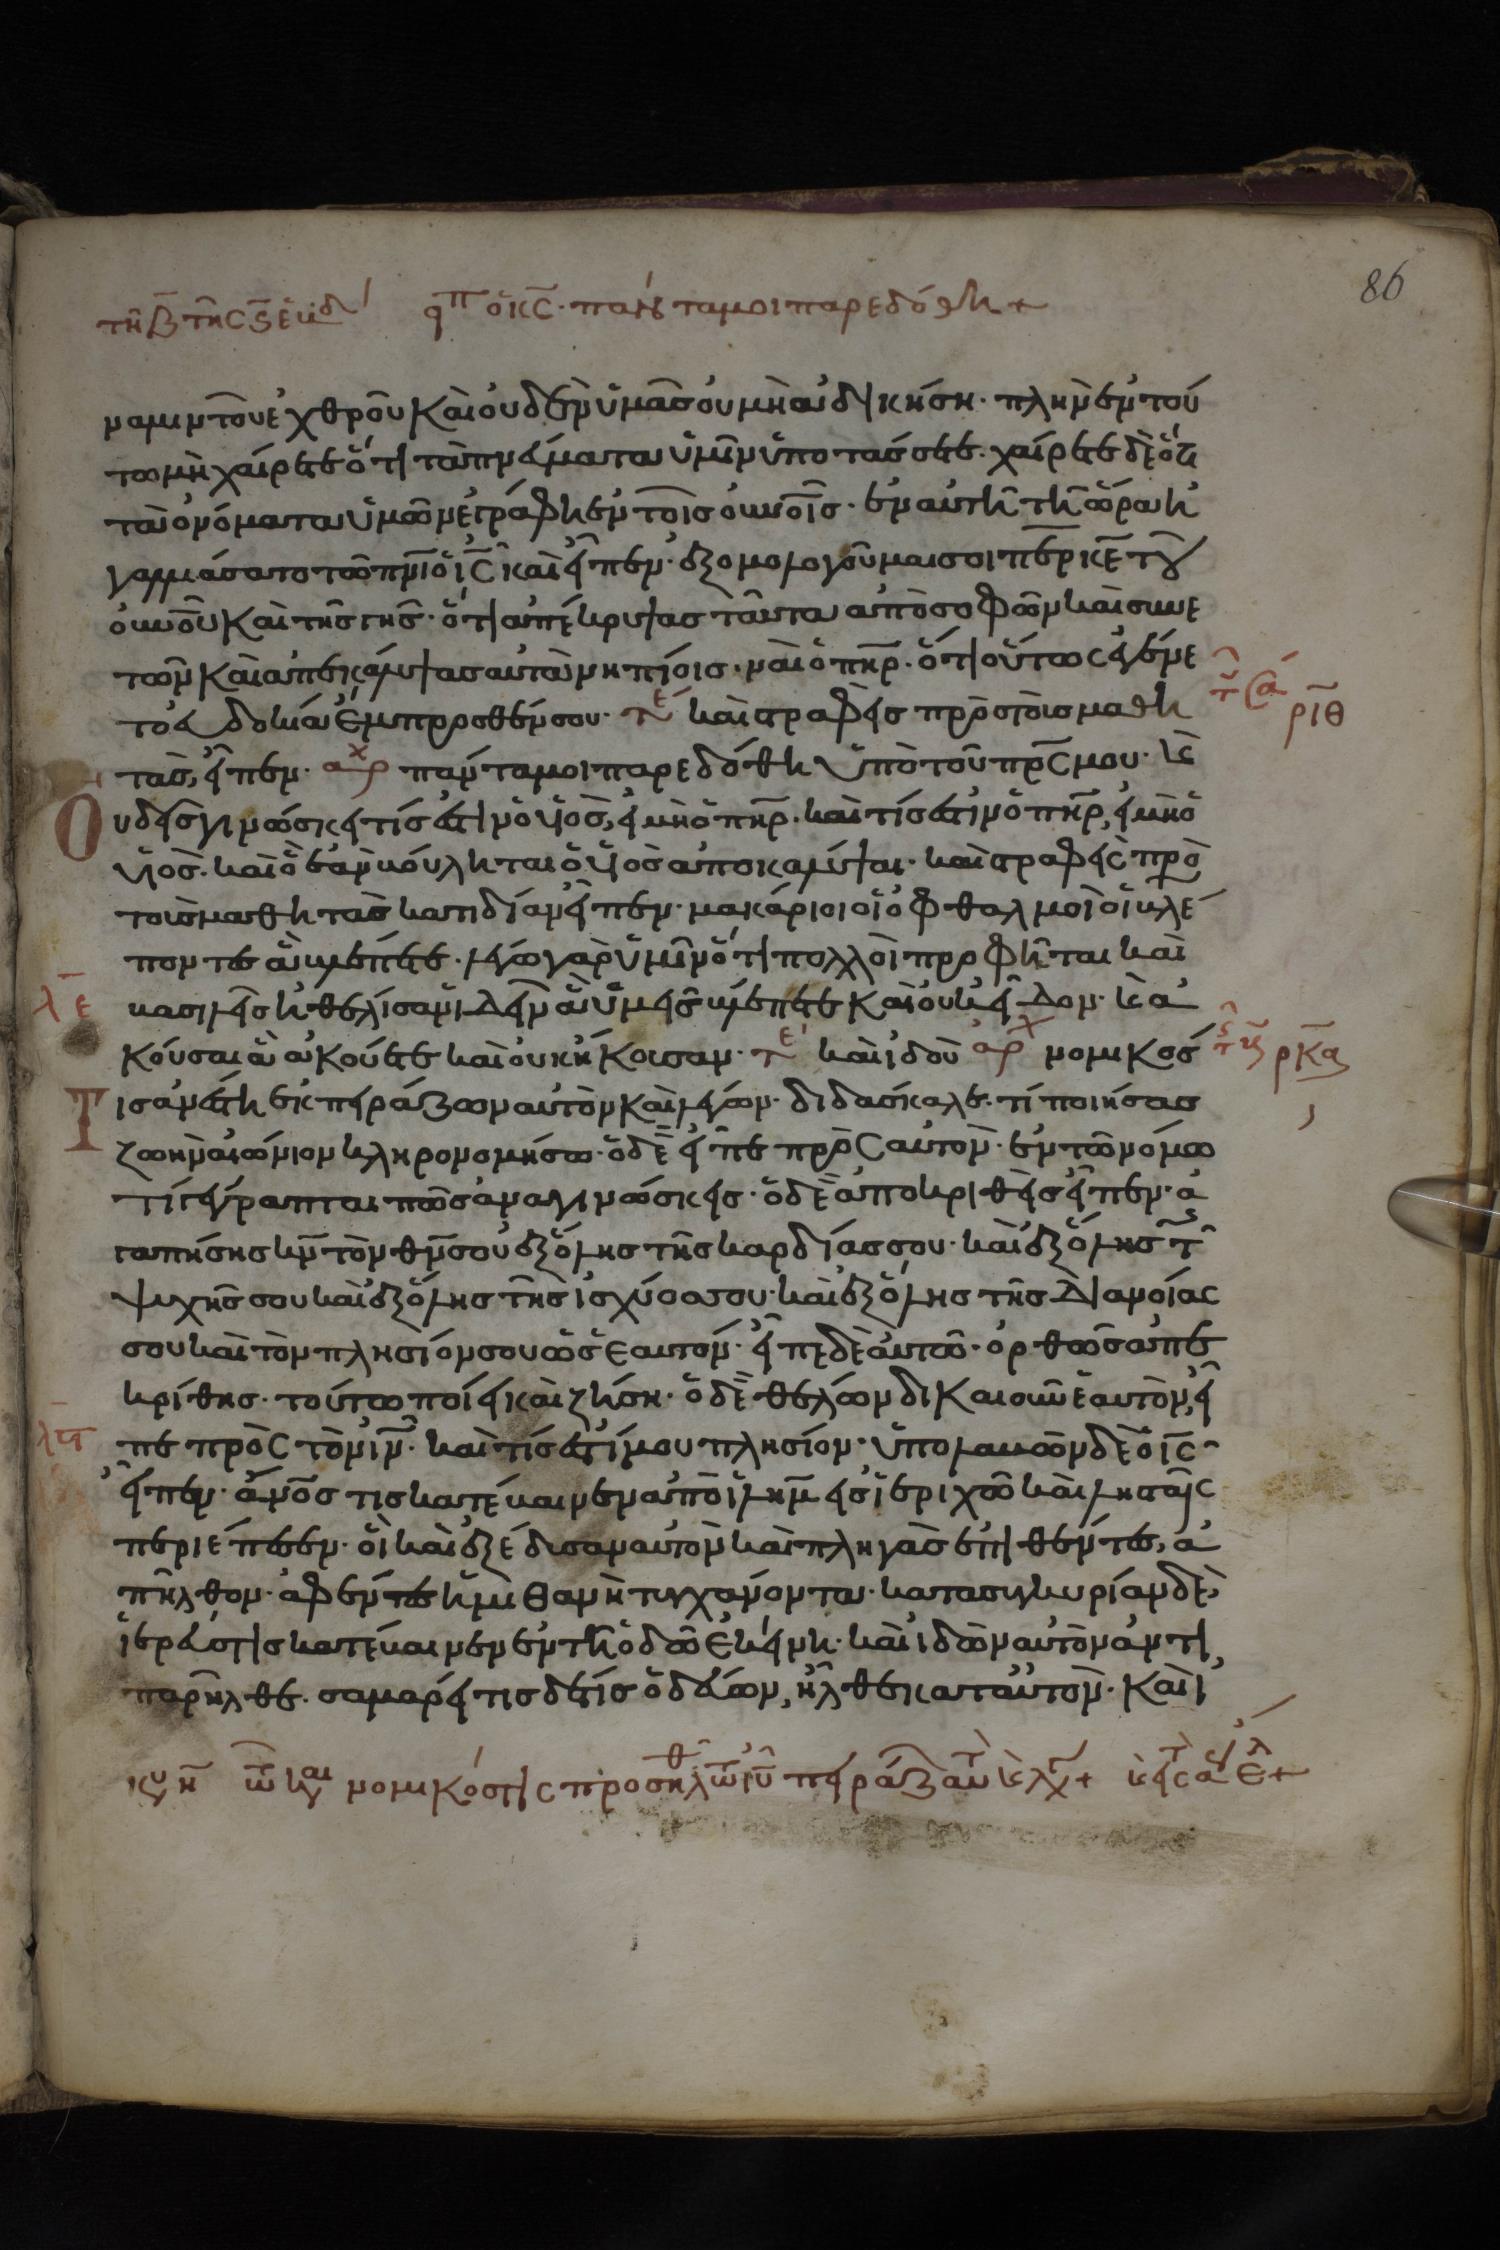 86
τῆ β τῆς ϛ ἑβδ εἶπ ὁ κς· πάντα μοι παρεδόθη +
ναμιν τοῦ ἐχθροῦ καὶ οὐδὲν ὑμᾶς οὐ μὴ ἀδικήση· πλὴν ἐν τού
τω μὴ χαίρετε ὅτι τὰ πνάματα ὑμῖν ὑποτάσσεται· χαίρετε δὲ ὅτι
τὰ ὀνόματα ὑμῶν ἐγράφη ἐν τοῖς οὐνοῖς· ἐν αὐτῆ τῆ ὥρα ἠ
γαλλιάσατο τῶ πνι ὁ ις καὶ εἶπεν· ἐξομολογοῦμαι σοι περ κε τοῦ
οὐνοῦ καὶ τῆς γῆς· ὅτι ἀπέκρυψας ταῦτα ἀπὸ σοφῶν καὶ συνε
τῶν καὶ ἀπεκάλυψας αὐτὰ νηπίοις· ναὶ ὁ πηρ· ὅτι οὕτως ἐγένε
το εὐδοκία ἔμπροσθέν σου· τε καὶ στραφεὶς πρὸς τοὺς μαθη
τὰς, εἶπεν· αρχ πάντα μοι παρεδόθη ὑπὸ τοῦ πρς μου· κὲ
Ουδεὶς γινώσκει τίς ἐστιν ὁ υἱὸς, εἰ μὴ ὁ πηρ· καὶ τίς ἐστιν ὁ πηρ, εἰ μὴ ὁ
υἱὸς· καὶ ὧ ἐὰν βούληται ὁ υἱὸς ἀποκαλύψαι· καὶ στραφεὶς πρὸς
τοὺς μαθητὰς κατιδίαν εἶπεν· μακάριοι οἱ ὀφθαλμοὶ οἱ βλέ
ποντες ἃ βλέπετε· λέγω γὰρ ὑμῖν ὅτι πολλοὶ προφῆται καὶ
βασιλεῖς ἠθέλησαν ἰδεῖν ἃ ὑμεῖς βλέπετε καὶ οὐκ εἶδον· κὲ ἀ
κοῦσαι ἃ ἀκούετε καὶ οὐκ ἤκουσαν· τε καὶ ἰδοὺ αρχ νομικός
Τις ἀνέστη ἐκπειράζων αὐτὸν καὶ λέγων· διδάσκαλε· τί ποιήσας
ζωὴν αἰώνιον κληρονομήσω· ὁ δὲ εἶπε πρὸς αὐτόν· ἐν τῶ νόμω
τί γέγραπται πῶς ἀναγινώσκεις· ὁ δὲ ἀποκριθεὶς εἶπεν· ἀ
γαπήσης κν τὸν θν σου ἐξ ὅλης τῆς καρδίας σου· καὶ ἐξ ὅλης τῆς
ψυχῆς σου καὶ ἐξ ὅλης τῆς ἰσχύος σου· καὶ ἐξ ὅλης τῆς διανοίας
σου καὶ τὸν πλησίον σου ὡς ἑαυτόν· εἶπε δὲ αὐτῶ· ὀρθῶς ἀπε
κρίθης· τοῦτο ποίει καὶ ζήση· ὁ δὲ θέλων δικαιοῦν ἑαυτὸν, εἶ
πε πρὸς τὸν ιν· καὶ τίς ἐστί μου πλησίον· ὑπολαβὼν δὲ ὁ ις
εἶπεν· ἄνος τις κατέβαινεν ἀπὸ ἱλημ εἰς ἱεριχὼ καὶ λησταῖς
περιέπεσεν· οἳ καὶ ἐξέδυσαν αὐτὸν καὶ πληγὰς ἐπιθέντες, ἀ
πῆλθον· ἀφέντες ἡμιθανῆ τυγχάνοντα· κατασυγκυρίαν δὲ,
ἱερεύς τις κατέβαινεν ἐν τῆ ὁδῶ ἐκείνη· καὶ ἰδὼν αὐτὸν ἀντι
παρῆλθε· σαμαρείτης δέ τις ὁδεύων, ἦλθε κατ αὐτόν· καὶ ἰ
ρ̅ι̅θ̅
λ̅ε̅
ρ̅κ̅α̅
νομικός τις προσῆλθ